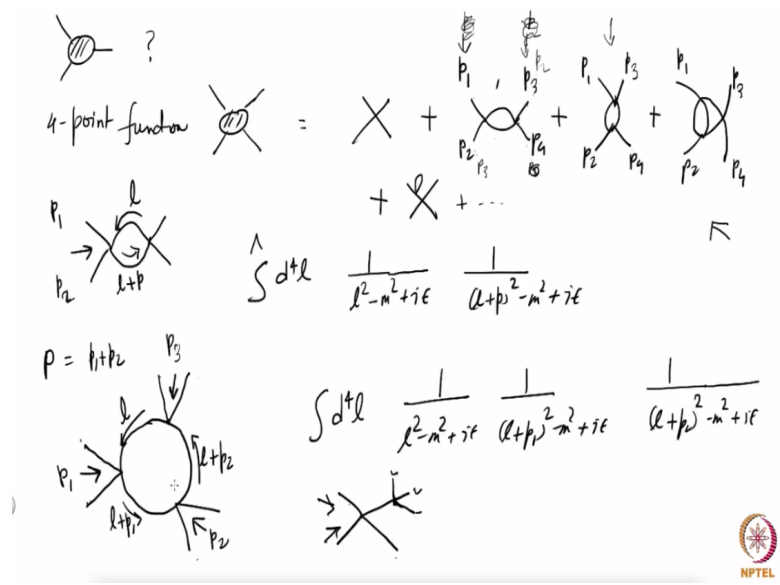 ?
4-point function = + + +
p₁ , p₃ p₂ p₂ p₃ p₄
p₁ p₃ p₂ p₄
p₁ p₃ p₂ p₄
+ + ----
p₁ p₂ l l+p
∫^Λ d⁴l 1/(l²-m²+iϵ) 1/((l+p)²-m²+iϵ)
P = p₁+p₂
p₃ l p₁ l+p₁ l+p₂ p₂
∫ d⁴l 1/(l²-m²+iϵ) 1/((l+p₁)²-m²+iϵ) 1/((l+p₂)²-m²+iϵ)
NPTEL